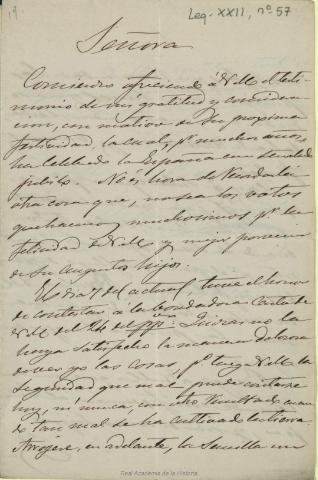 19.
Leg. XXII, nº 57
Señora
Correspondo ofreciendo á V.M. el testi-
monio de mi gratitud y considera-
cion, con motivo de Su proxima
festividad, la cual, pr. muchos años,
ha celebrado la España con verdadero
jubilo. No es hora de recordar
otra cosa que, no sea los votos
que hacemos muchisimos pr. la
felicidad de V.M. y mejor porvenir
de Su Augusto hijo.
El dia 7 del actual tuve el honor
de contestar á la bondadosa Carta de
V.M. del 24 del ppº. Quizas no la
haya Satisfecho la manera dolorosa
de ver yo las cosas, pº tenga V.M. la
Seguridad que mal puede contarse
hoy, ni nunca, con otro Resultado cuan-
do tan mal se ha cultivado la tierra.
Arrojese, en adelante, la Semilla en
Real Academia de la Historia